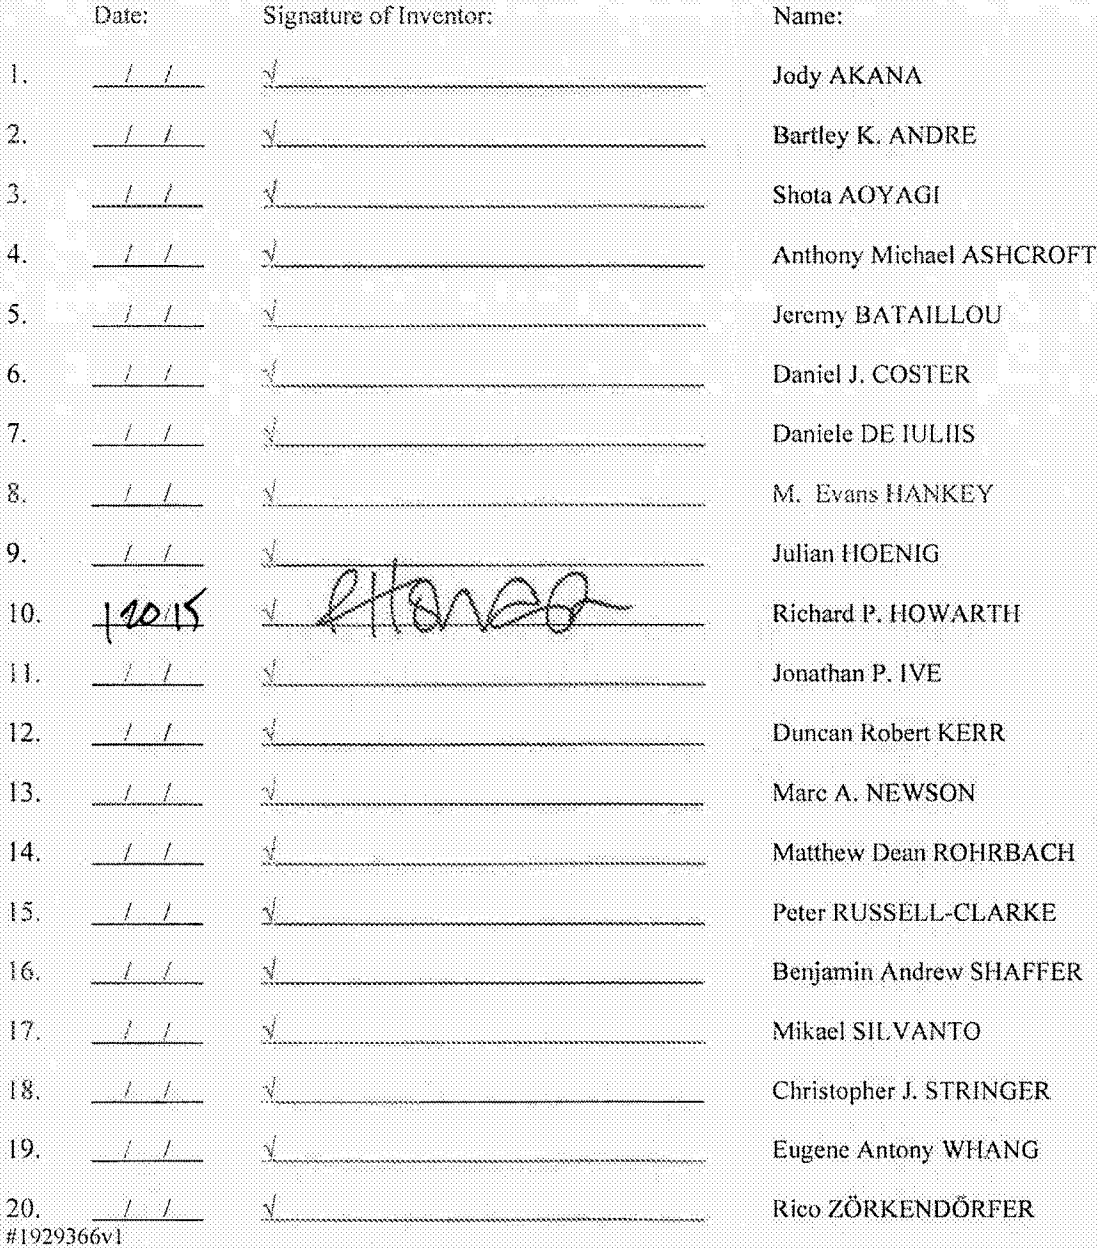 Date: Signature of Inventor: Name:
1. / / √ Jody AKANA
2. / / √ Bartley K. ANDRE
3. / / √ Shota AOYAGI
4. / / √ Anthony Michael ASHCROFT
5. / / √ Jeremy BATAILLOU
6. / / √ Daniel J. COSTER
7. / / √ Daniele DE IULIIS
8. / / √ M. Evans HANKEY
9. / / √ Julian HOENIG
10. 1/20/15 √ Richard P. HOWARTH
11. / / √ Jonathan P. IVE
12. / / √ Duncan Robert KERR
13. / / √ Marc A. NEWSON
14. / / √ Matthew Dean ROHRBACH
15. / / √ Peter RUSSELL-CLARKE
16. / / √ Benjamin Andrew SHAFFER
17. / / √ Mikael SILVANTO
18. / / √ Christopher J. STRINGER
19. / / √ Eugene Antony WHANG
20. / / √ Rico ZÖRKENDÖRFER
#1929366v1